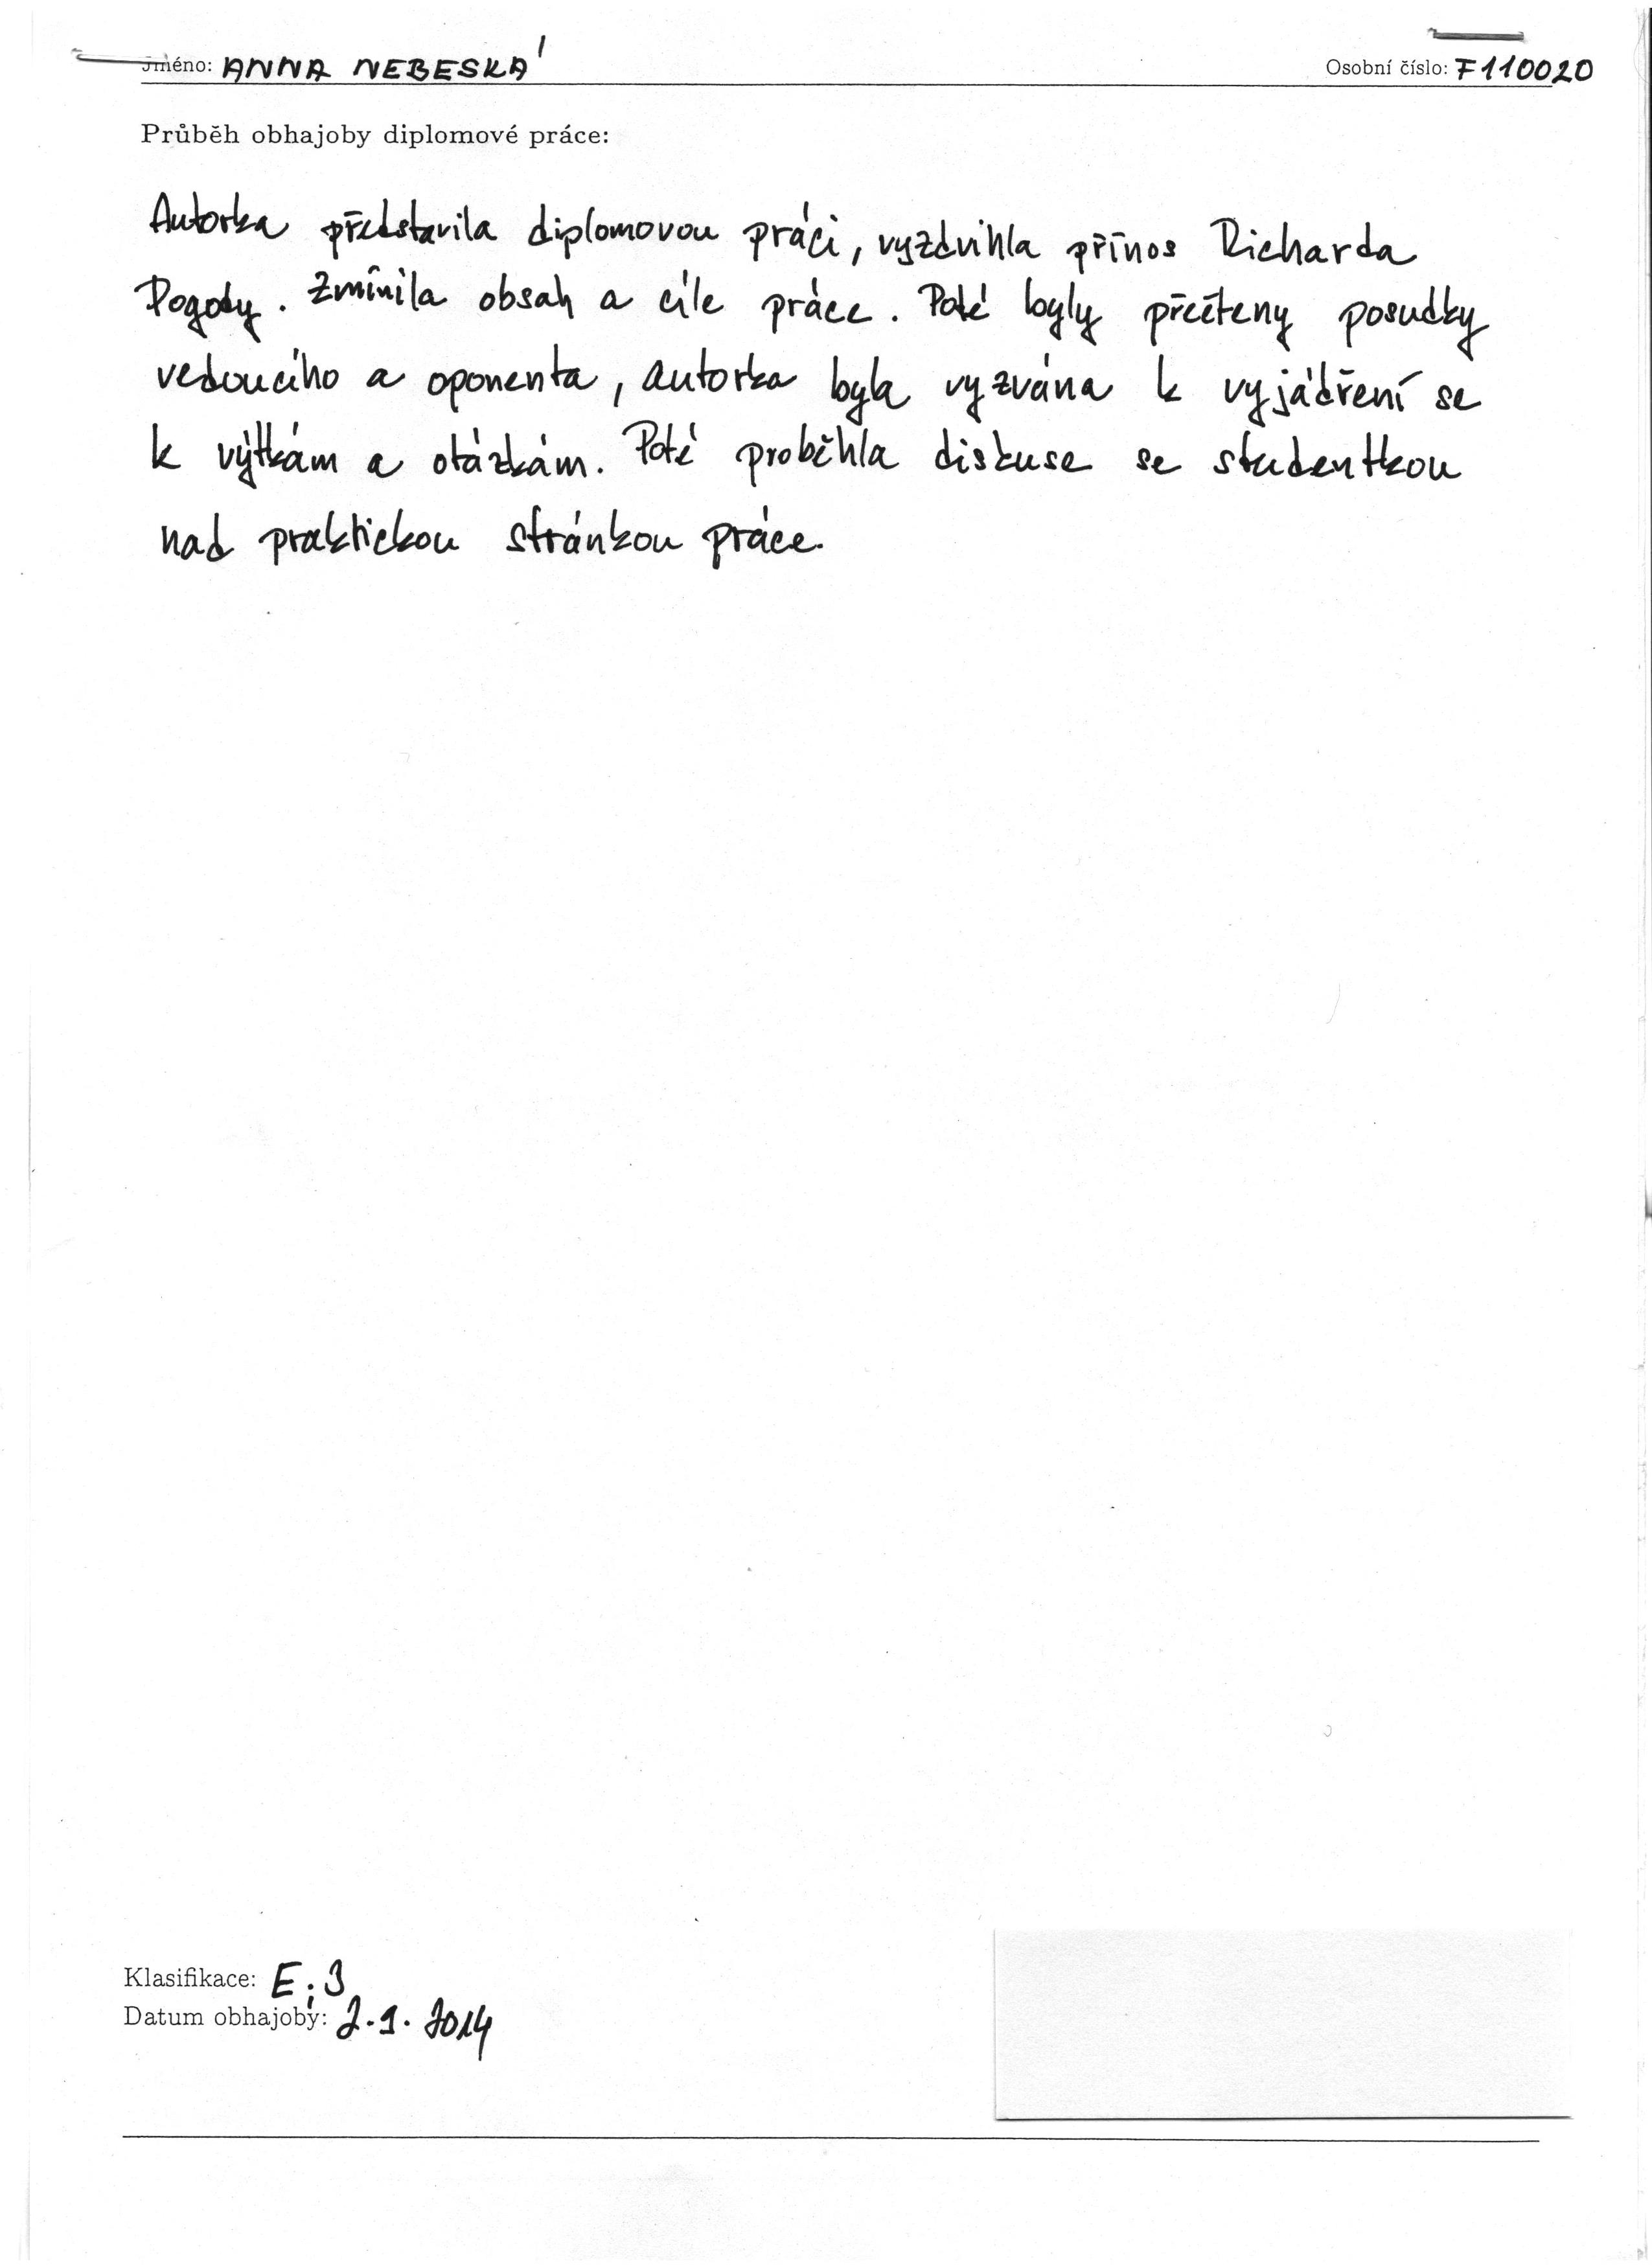 Jméno: ANNA NEBESKÁ Osobní číslo: F110020
Průběh obhajoby diplomové práce:
Autorka představila diplomovou práci, vyzdvihla přínos Richarda
Pogody. Zmínila obsah a cíle práce. Poté byly přečteny posudky
vedoucího a oponenta, autorka byla vyzvána k vyjádření se
k výtkám a otázkám. Poté proběhla diskuse se studentkou
nad praktickou stránkou práce.
Klasifikace: E; 3
Datum obhajoby: 2.9.2014